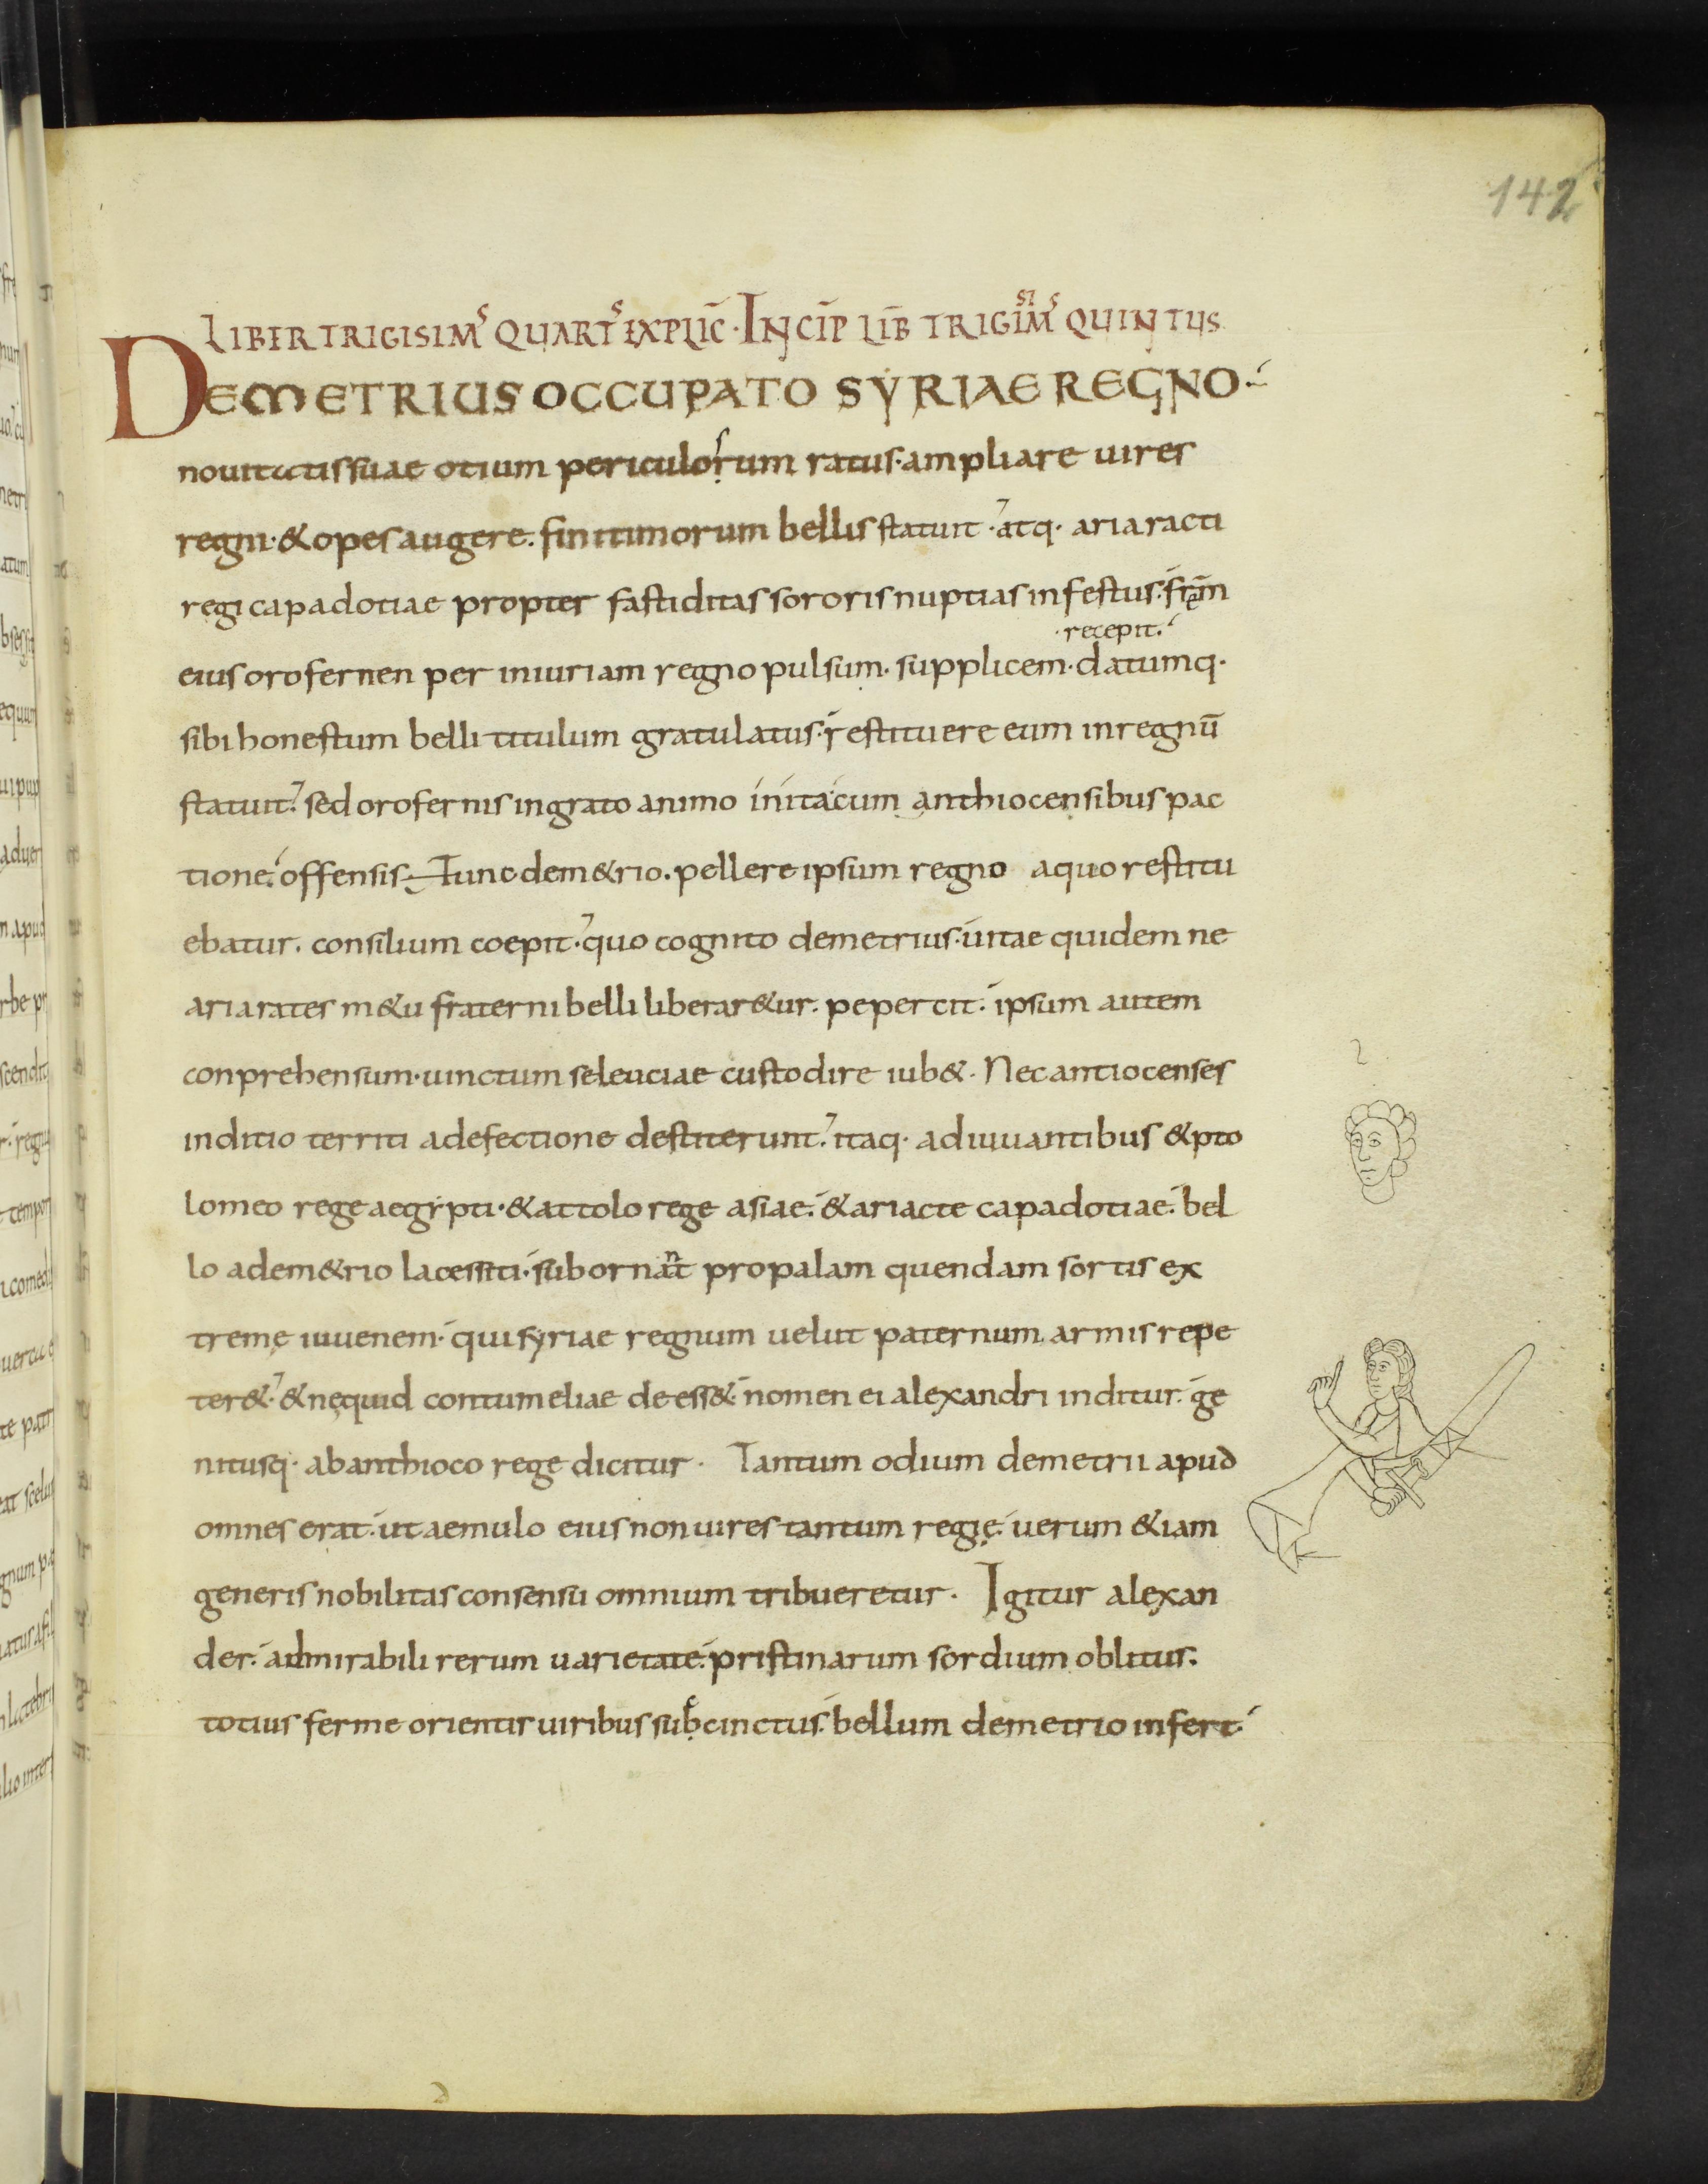 142
LIBER TRIGISIMꝰ QUARTꝰ EXPLIC̄· INCIP̄ LIB̄ TRIGISIMꝰ QUINTUS
DEMETRIUS OCCUPATO SYRIAE REGNO·
nouitatis suae otium periculosum ratus· ampliare uires
regni· & opes augere. finitimorum bellis statuit· atq· ariaracti
regi capadotiae propter fastiditas sororis nuptias infestus. frēm
recepit.
eius orofernen per iniuriam regno pulsum. supplicem· datumq·
sibi honestum belli titulum gratulatus· restituere eum in regnū
statuit. sed orofernis ingrato animo inita cum anthiocensibus pac
tione. offensis. Tunc dem&rio. pellere ipsum regno a quo restitu
ebatur. consilium coepit. quo cognito demetrius· uitae quidem ne
ariarates m&u fraterni belli liberar&ur. pepercit. ipsum autem
conprehensum· uinctum seleuciae custodire iub&. Nec antiocenses
inditio territi a defectione destiterunt. itaq· adiuuantibus & pto
lomeo rege aegypti· & attolo rege asiae. & ariacte capadotiae. bel
lo a dem&rio lacessiti· subornant propalam quendam sortis ex
tremę iuuenem· qui syriae regnum uelut paternum armis repe
ter&. & nequid contumeliae deess&. nomen ei alexandri inditur. ge
nitusq· ab anthioco rege dicitur· Tantum odium demetrii apud
omnes erat. ut aemulo eius non uires tantum regię. uerum & iam
generis nobilitas consensu omnium tribueretur· Igitur alexan
der. admirabili rerum uarietate. pristinarum sordium oblitus.
totius ferme orientis uiribus subcinctus. bellum demetrio infert·